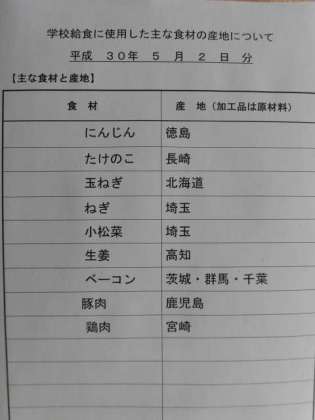 学校給食に使用した主な食材の産地について
平成 30年 5 月 2 日 分
【主な食材と産地】
食 材 産 地（加工品は原材料）
にんじん 徳島
たけのこ 長崎
玉ねぎ 北海道
ねぎ 埼玉
小松菜 埼玉
生姜 高知
ベーコン 茨城・群馬・千葉
豚肉 鹿児島
鶏肉 宮崎